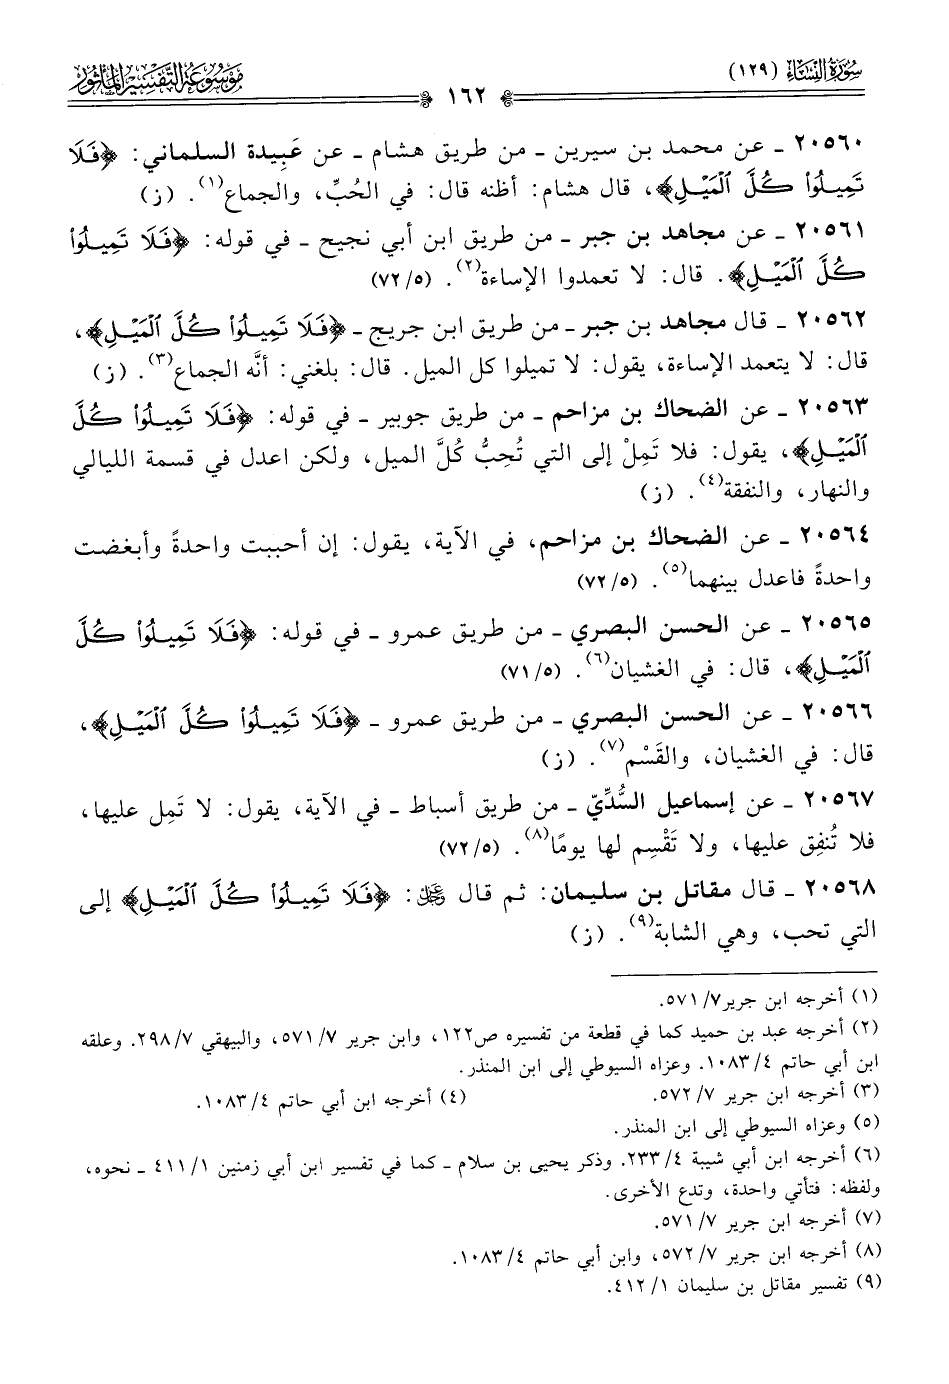 سُورَةُ النِّسَاءِ (١٢٩)
١٦٢
مَوْسُوعَةُ التَّفْسِيرِ المَأْثُورِ
٢٠٥٦٠ ـ عن محمد بن سيرين ـ من طريق هشام ـ عن عَبِيدة السلماني: ﴿فَلَا
تَمِيلُوا۟ كُلَّ ٱلْمَيْلِ﴾، قال هشام: أظنه قال: في الحُبِّ، والجماع(١). (ز)
٢٠٥٦١ ـ عن مجاهد بن جبر ـ من طريق ابن أبي نجيح ـ في قوله: ﴿فَلَا تَمِيلُوا۟
كُلَّ ٱلْمَيْلِ﴾. قال: لا تعمدوا الإساءة(٢). (٥/ ٧٢)
٢٠٥٦٢ ـ قال مجاهد بن جبر ـ من طريق ابن جريج ـ ﴿فَلَا تَمِيلُوا۟ كُلَّ ٱلْمَيْلِ﴾،
قال: لا يتعمد الإساءة، يقول: لا تميلوا كل الميل. قال: بلغني: أنَّه الجماع(٣). (ز)
٢٠٥٦٣ ـ عن الضحاك بن مزاحم ـ من طريق جوبير ـ في قوله: ﴿فَلَا تَمِيلُوا۟ كُلَّ
ٱلْمَيْلِ﴾، يقول: فلا تَمِلْ إلى التي تُحِبُّ كُلَّ الميل، ولكن اعدل في قسمة الليالي
والنهار، والنفقة(٤). (ز)
٢٠٥٦٤ ـ عن الضحاك بن مزاحم، في الآية، يقول: إن أحببت واحدةً وأبغضت
واحدةً فاعدل بينهما(٥). (٥/ ٧٢)
٢٠٥٦٥ ـ عن الحسن البصري ـ من طريق عمرو ـ في قوله: ﴿فَلَا تَمِيلُوا۟ كُلَّ
ٱلْمَيْلِ﴾، قال: في الغشيان(٦). (٥/ ٧١)
٢٠٥٦٦ ـ عن الحسن البصري ـ من طريق عمرو ـ ﴿فَلَا تَمِيلُوا۟ كُلَّ ٱلْمَيْلِ﴾،
قال: في الغشيان، والقَسْم(٧). (ز)
٢٠٥٦٧ ـ عن إسماعيل السُّدِّيّ ـ من طريق أسباط ـ في الآية، يقول: لا تَمِل عليها،
فلا تُنفِق عليها، ولا تَقْسِم لها يومًا(٨). (٥/ ٧٢)
٢٠٥٦٨ ـ قال مقاتل بن سليمان: ثم قال ﷿: ﴿فَلَا تَمِيلُوا۟ كُلَّ ٱلْمَيْلِ﴾ إلى
التي تحب، وهي الشابة(٩). (ز)
(١) أخرجه ابن جرير٧/ ٥٧١.
(٢) أخرجه عبد بن حميد كما في قطعة من تفسيره ص١٢٢، وابن جرير ٧/ ٥٧١، والبيهقي ٧/ ٢٩٨. وعلقه
ابن أبي حاتم ٤/ ١٠٨٣. وعزاه السيوطي إلى ابن المنذر.
(٣) أخرجه ابن جرير ٧/ ٥٧٢. (٤) أخرجه ابن أبي حاتم ٤/ ١٠٨٣.
(٥) وعزاه السيوطي إلى ابن المنذر.
(٦) أخرجه ابن أبي شيبة ٤/ ٢٣٣. وذكر يحيى بن سلام ـ كما في تفسير ابن أبي زمنين ١/ ٤١١ ـ نحوه،
ولفظه: فتأتي واحدة، وتدع الأخرى.
(٧) أخرجه ابن جرير ٧/ ٥٧١.
(٨) أخرجه ابن جرير ٧/ ٥٧٢، وابن أبي حاتم ٤/ ١٠٨٣.
(٩) تفسير مقاتل بن سليمان ١/ ٤١٢.